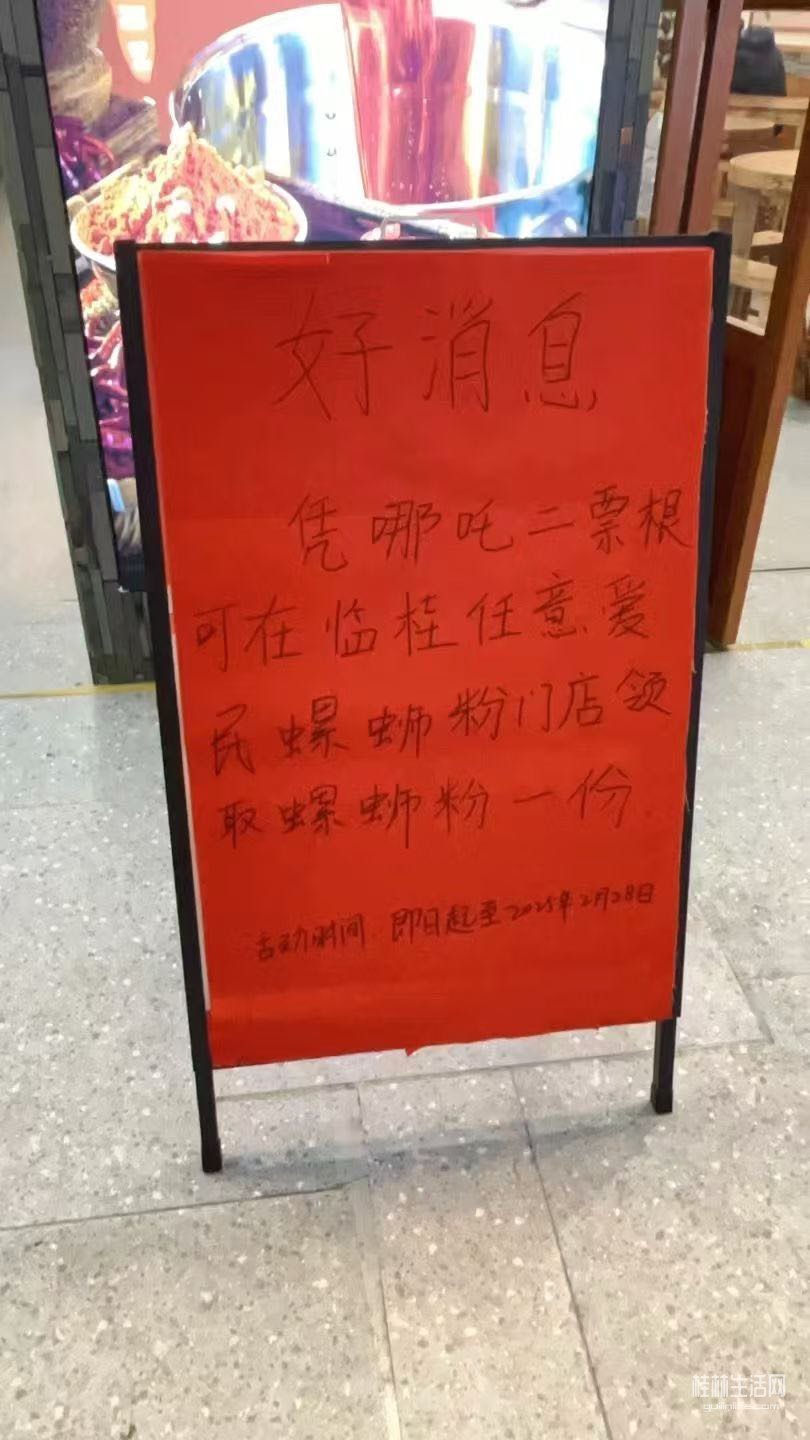 好消息
凭哪吒二票根
可在临桂任意爱
民螺蛳粉门店领
取螺蛳粉一份
活动时间 即日起至2025年2月28日
桂林生活网
guilinlife.com